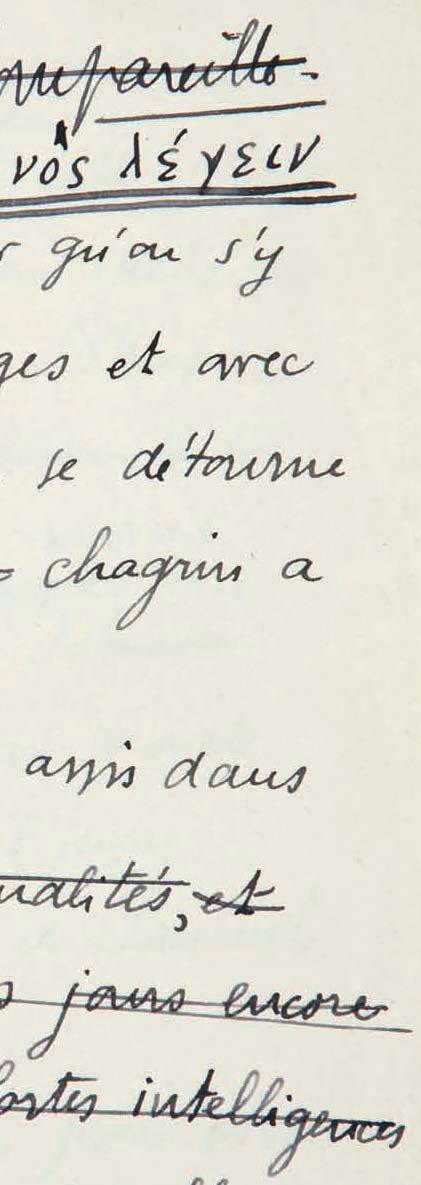 νος λέγειν
qu'on s'y
ges et avec
se détourne
chagrin a
assis dans
ualités, et
jours encore
fortes intelligences